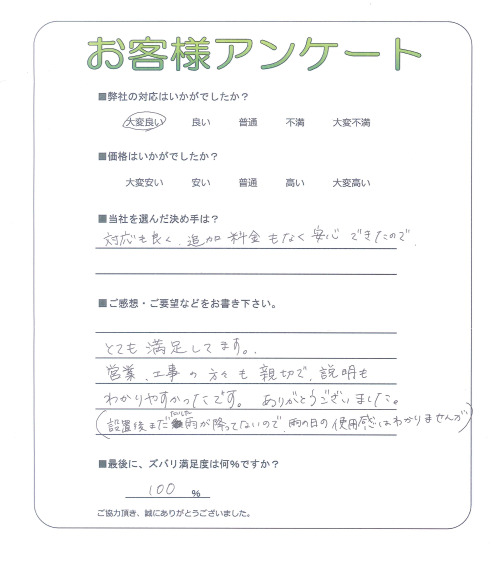 お客様アンケート
■弊社の対応はいかがでしたか？
大変良い 良い 普通 不満 大変不満
■価格はいかがでしたか？
大変安い 安い 普通 高い 大変高い
■当社を選んだ決め手は？
対応も良く、追加料金もなく安心できたので、
■ご感想・ご要望などをお書き下さい。
とても満足してます。
営業、工事の方々も親切で、説明も
わかりやすかったです。ありがとうございました。
(設置後まだ雨が降ってないので、雨の日の使用感はわかりませんが)
■最後に、ズバリ満足度は何%ですか？
100 %
ご協力頂き、誠にありがとうございました。